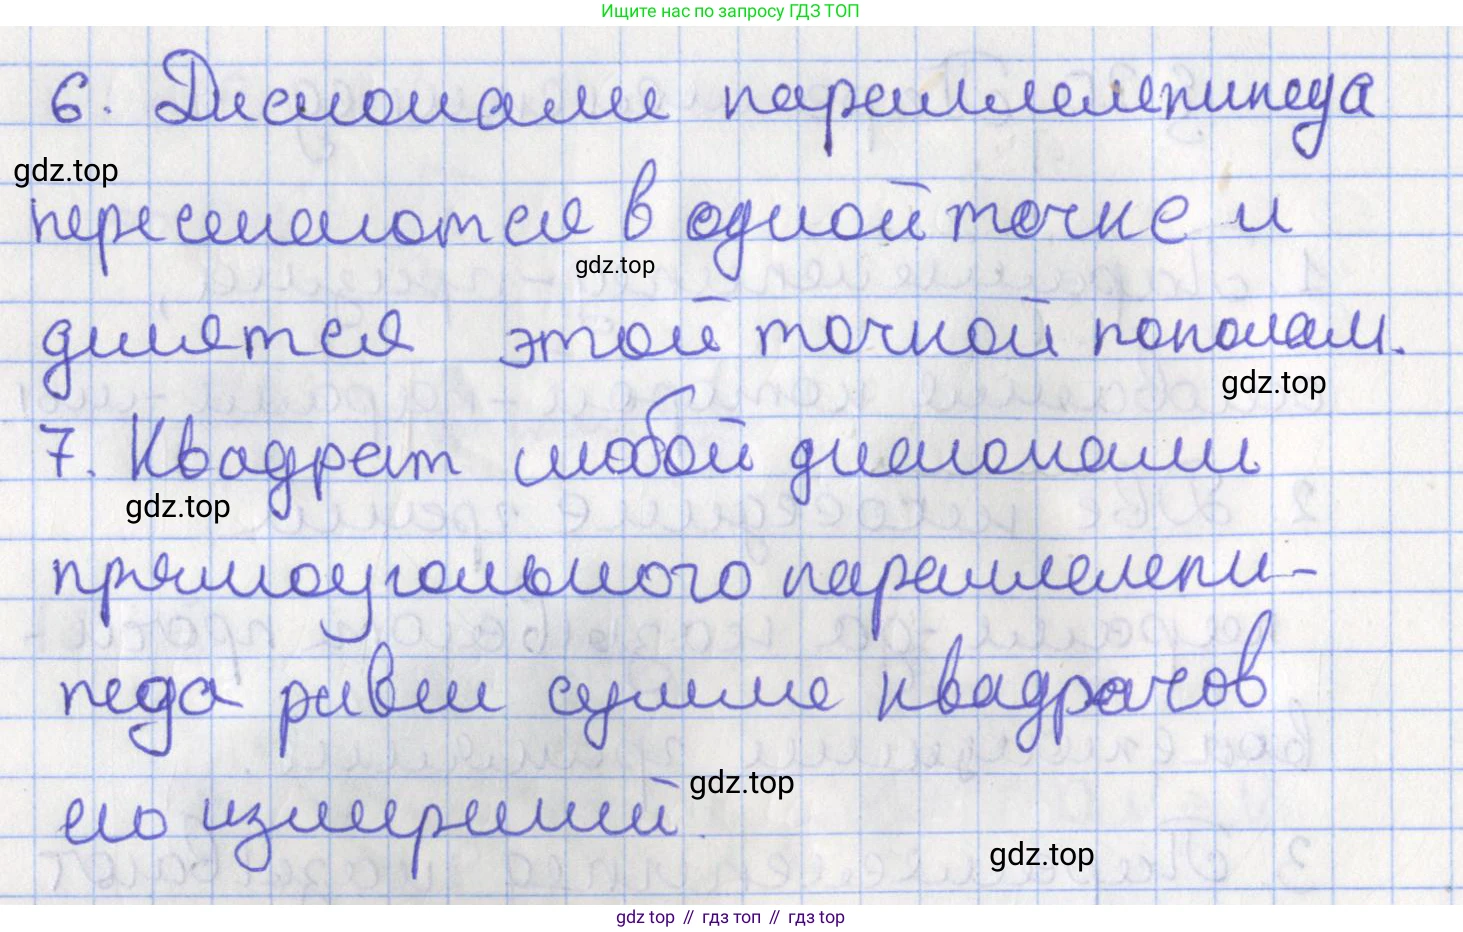 Ищите нас по запросу ГДЗ ТОП
6. Диагонали параллелепипеда
gdz.top
пересекаются в одной точке и
gdz.top
делятся этой точкой пополам.
gdz.top
7. Квадрат любой диагонали
gdz.top
прямоугольного параллелепи-
педа равен сумме квадратов
gdz.top
его измерений.
gdz.top
gdz top // гдз топ // гдз top